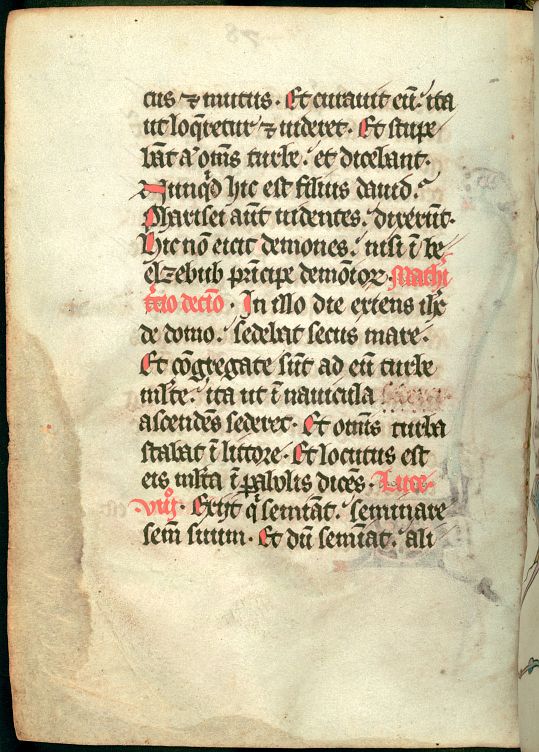 cus ⁊ mutus. Et curauit eū. ita
ut loq̄retur ⁊ uideret. Et stupe
bāt a' om̄s turbe. et dicebant.
Nunq'd hic est filius dauid.
Pharisei aūt uidentes. dixerūt.
Hic nō eicit demones. nisi ī be
elzebub prīncipe demōioꝝ. Mathi
tcio decīo. In illo die exiens ihc̄
de domo. sedebat secus mare.
Et cōgregate sūt ad eū turbe
mlte. ita ut ī nauicula
ascendēs sederet. Et om̄is turba
stabat ī littore. Et locutus est
eis mlta ī ꝑabolis dicēs. Luce.
viijº. Exijt q̇ semīat. seminare
sem̄ suum. Et dū semīat. ali